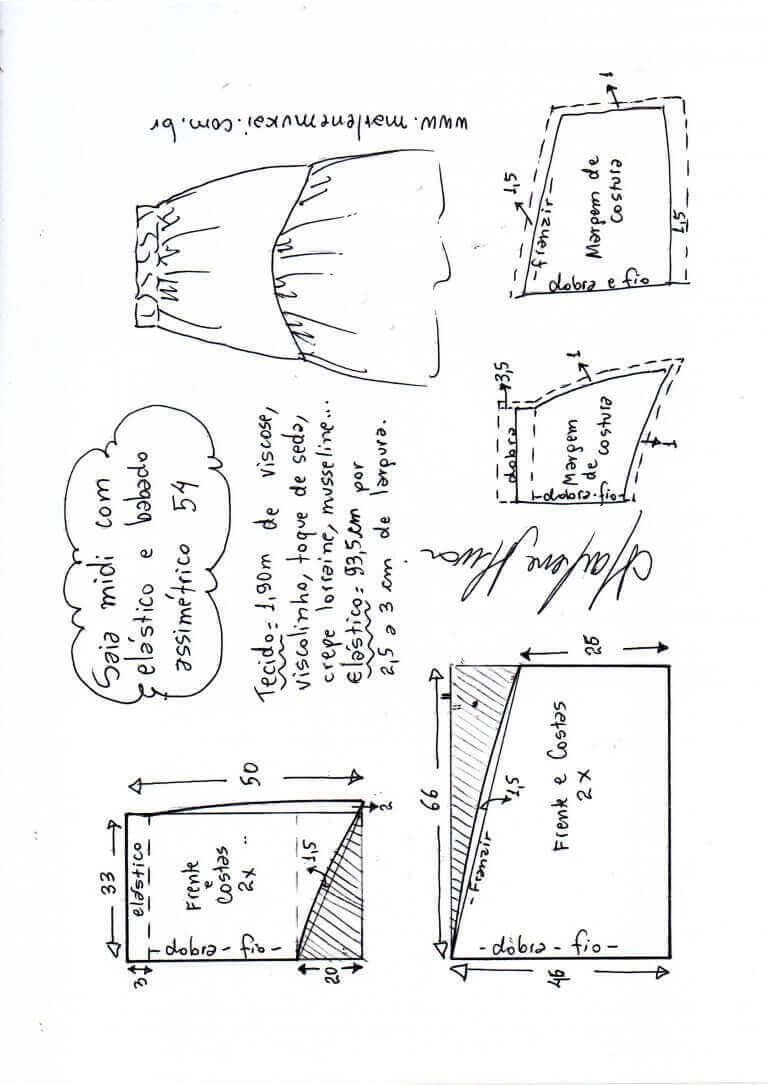 Saia midi com
elástico e babado
assimétrico 54
Tecido: 1,90m de viscose,
viscolinho, toque de seda,
crepe lorraine, musseline...
Elástico: 93,5cm por
2,5 a 3 cm de largura.
www.marlenemukai.com.br
33
50
3
elástico
Frente
e
Costas
2x
1,5
2
- dobra - fio -
20
66
25
1,5
- Franzir -
Frente e Costas
2x
- dobra - fio -
46
3,5
dobra
1
Margem
de costura
1
- dobra - fio -
1
1,5
- franzir -
Margem de
costura
1,5
dobra e fio